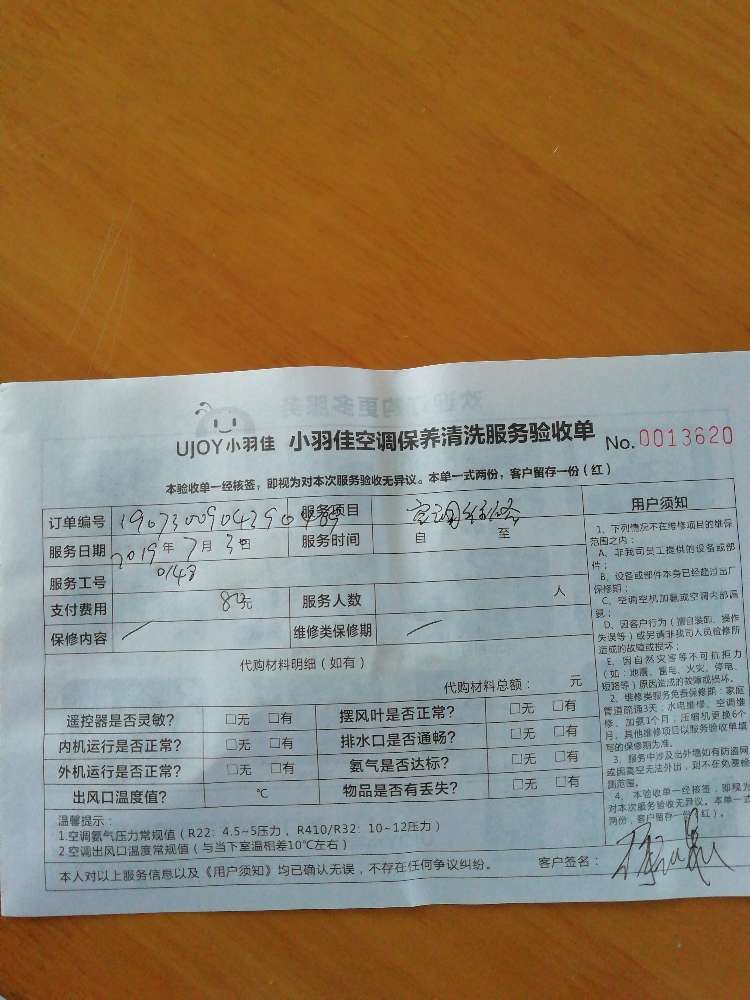 UJOY小羽佳 小羽佳空调保养清洗服务验收单 No.0013620
本验收单一经核签，即视为对本次服务验收无异议。本单一式两份，客户留存一份（红）
订单编号 服务项目 空调维修
服务日期 2019年7月3日 服务时间 自 至
服务工号 0143
支付费用 80元 服务人数 人
保修内容 / 维修类保修期 /
代购材料明细（如有）
代购材料总额： 元
遥控器是否灵敏？ □无 □有 摆风叶是否正常？ □无 □有
内机运行是否正常？ □无 □有 排水口是否通畅？ □无 □有
外机运行是否正常？ □无 □有 氨气是否达标？ □无 □有
出风口温度值？ ℃ 物品是否有丢失？ □无 □有
温馨提示：
1.空调氨气压力常规值（R22：4.5~5压力，R410/R32：10~12压力）
2.空调出风口温度常规值（与当下室温相差10℃左右）
本人对以上服务信息以及《用户须知》均已确认无误，不存在任何争议纠纷。 客户签名：
用户须知
1、下列情况不在维修项目的维保
范围之内：
A、非我司员工提供的设备或部
件；
B、设备或部件本身已经超过出厂
保修期；
C、空调空机加氨或空调内部漏
氨；
D、因客户行为（擅自装卸、操作
失误等）或另请非我司人员检修所
造成的故障或损坏；
E、因自然灾害等不可抗拒力
（如：地震、雷电、火灾、停电、
短路等）原因造成的故障或损坏。
2、维修类服务免费保修期：家庭
管道疏通3天；水电维修、空调维
修、加氨1个月；压缩机更换6个
月。其他维修项目以服务验收单填
写的保修期为准。
3、服务中涉及出外墙如有防盗网
或因高空无法外出，则不在免费检
测范围。
4、本验收单一经核签，即视为
对本次服务验收无异议。本单一式
两份，客户留存一份（红）。